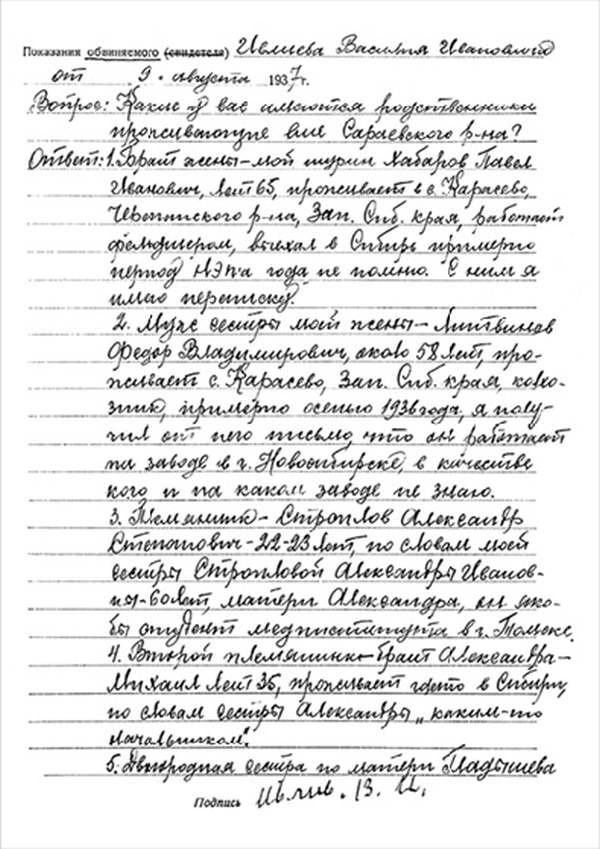 Показания обвиняемого (свидетеля) Ивлиева Василия Ивановича
от 9 августа 1937г.
Вопрос: Какие у вас имеются родственники
проживающие вне Сараевского р-на?
Ответ: 1. Брат жены-мой шурин Хабаров Павел
Иванович, лет 65, проживает в с. Карасево,
Черепанского р-на, Зап. Сиб. края, работает
фельдшером, выехал в Сибирь примерно
период НЭПа года не помню. С ним я
имею переписку.
2. Муж сестры моей жены-Литвинов
Федор Владимирович, около 58 лет, про-
живает с. Карасево, Зап. Сиб. края, колхо-
зник, примерно осенью 1936 года, я полу-
чил от него письмо, что он работает
на заводе в г. Новосибирске, в качестве
кого и на каком заводе не знаю.
3. Племянник-Строилов Александр
Степанович-22-23 лет, по словам моей
сестры Строиловой Александры Иванов-
ны-60 лет, матери Александра, он яко-
бы студент мединститута в г. Томске.
4. Второй племянник-брат Александра-
Михаил лет 35, проживает где-то в Сибири,
по словам сестры Александры „каким-то
начальником".
5. Двоюродная сестра по матери Гладышева
Подпись Ивлив. В. И.